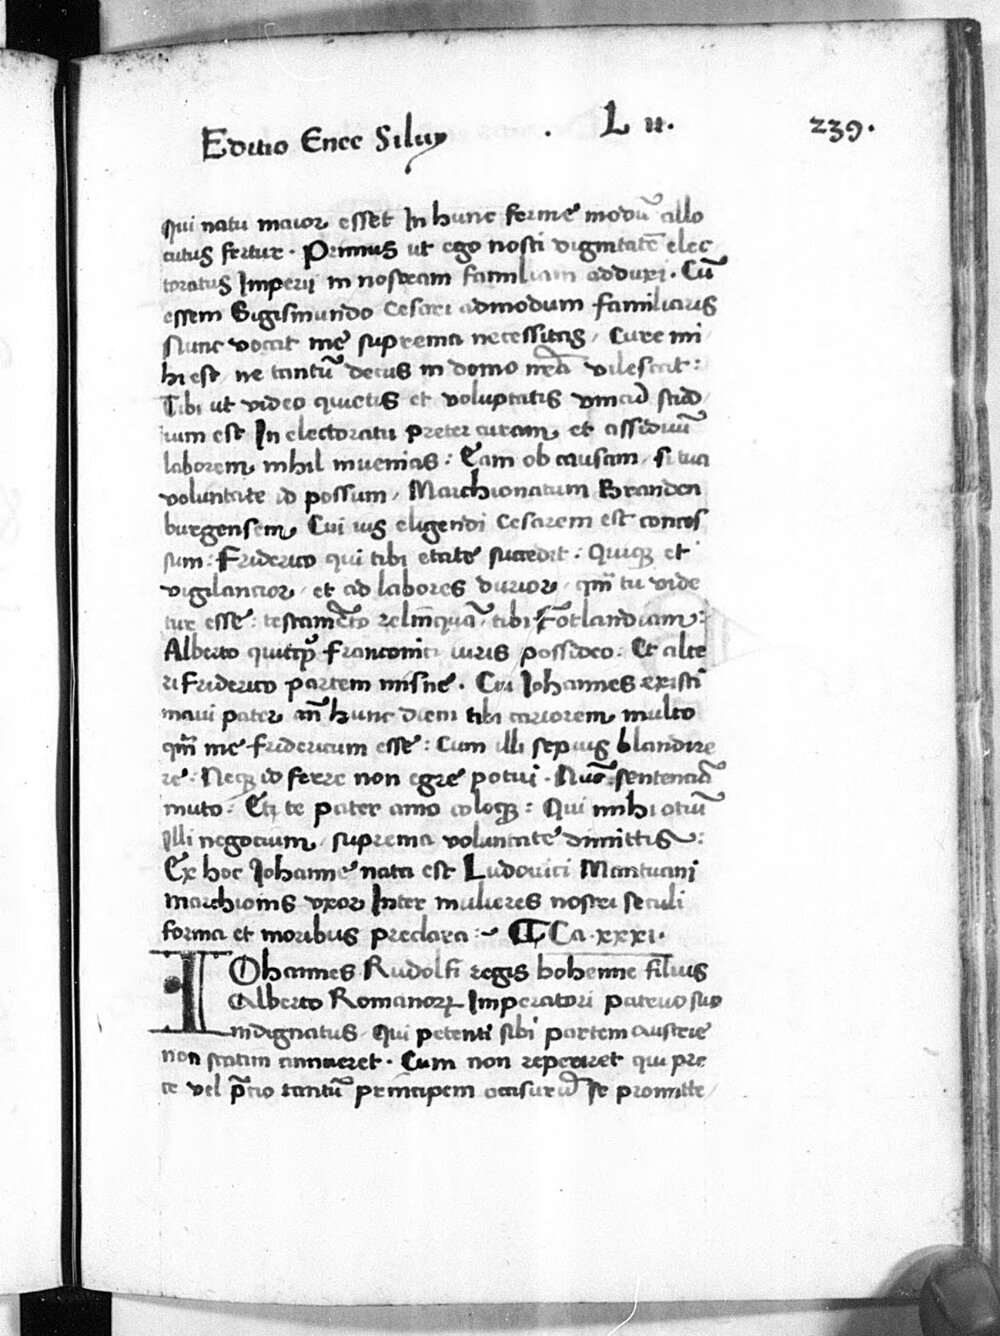 Editio Enee Siluij . L ii. 239.
qui natu maior esset In hunc ferme modū allo
cutus fertur. Primus ut ego nosti dignitatē elec
toratus Imperii in nostram familiam adduxi. Cū
essem Sigismundo Cesari admodum familiaris
Nunc vocat me suprema necessitas / Cure mi
hi est / ne tantū decus in domo mēa vilescat:
Tibi ut video quietis et voluptatis unicū stud
ium est In electoratu preter curam et assiduū
laborem nihil inuenias: Eam ob causam / si tua
voluntate id possum / Marchionatum Branden
burgensem Cui ius eligendi Cesarem est conces
sum: Friderico qui tibi etate succedit: Quiqꝫ et
vigilancior / et ad labores durior / qm̄ tu vide
tur esse: testamēto relinquā / tibi
Alberto quicqͥd Franconici iuris possideo: Et alte
ri Friderico partem misne. Cui Johannes existi
maui pater an̄ hunc diem tibi cariorem multo
qm̄ me Fridericum esse: Cum illi sepius blandire
re: Neqꝫ id ferre non egre potui. Nūc sentenciā
muto: Et te pater amo coloqꝫ: Qui mihi otiū
Illi negocium / suprema voluntate dimittis:
Ex hoc Johanne nata est Ludouici Mantuani
marchionis vxor Inter mulieres nostri seculi
forma et moribus preclara: ~ ¶ Ca. xxxi.
IOhannes Rudolfi regis bohemie filius
Alberto Romanorꝝ Imperatori patruo suo
indignatus / Qui petenti sibi partem austrie
non statim annueret. Cum non reperiret qui pre
ce vel p̄cio tantū principem occisurū se promitte